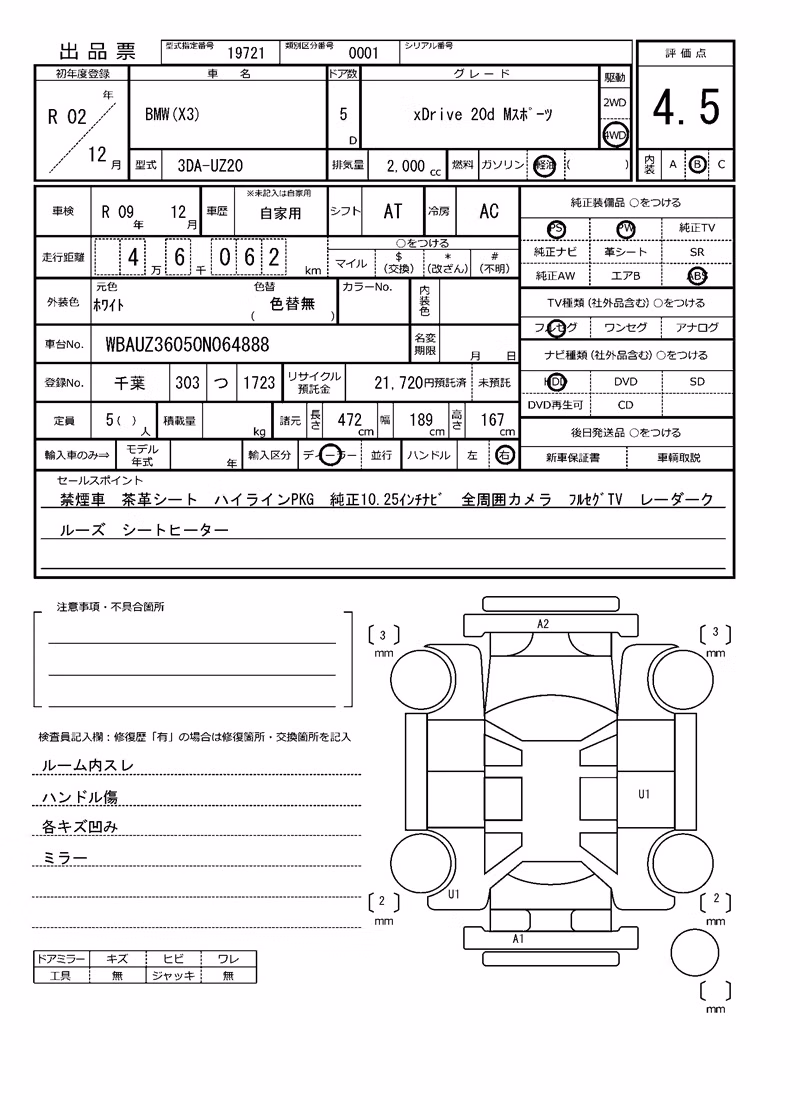 出品票
型式指定番号 19721 類別区分番号 0001 シリアル番号
評価点
4.5
内装 A B C
初年度登録 車名 ドア数 グレード 駆動
R 02 年 12 月
BMW(X3) 5 D xDrive 20d Mスポーツ 2WD 4WD
型式 3DA-UZ20 排気量 2,000 cc 燃料 ガソリン 軽油 ( )
車検 R 09 年 12 月 車歴 ※未記入は自家用 自家用 シフト AT 冷房 AC
走行距離 4 万 6 千 0 6 2 km
○をつける
マイル $(交換) *(改ざん) #(不明)
外装色 元色 ホワイト 色替 ( 色替無 ) カラーNo. 内装色
車台No. WBAUZ36050N064888 名変期限 月 日
登録No. 千葉 303 つ 1723 リサイクル預託金 21,720円預託済 未預託
定員 5( ) 人 積載量 kg 諸元 長さ 472 cm 幅 189 cm 高さ 167 cm
輸入車のみ⇒ モデル年式 年 輸入区分 ディーラー 並行 ハンドル 左 右
純正装備品 ○をつける
PS PW 純正TV
純正ナビ 革シート SR
純正AW エアB ABS
TV種類(社外品含む)○をつける
フルセグ ワンセグ アナログ
ナビ種類(社外品含む)○をつける
HDD DVD SD
DVD再生可 CD
後日発送品 ○をつける
新車保証書 車輌取説
セールスポイント
禁煙車 茶革シート ハイラインPKG 純正10.25インチナビ 全周囲カメラ フルセグTV レーダーク
ルーズ シートヒーター
注意事項・不具合箇所
検査員記入欄:修復歴「有」の場合は修復箇所・交換箇所を記入
ルーム内スレ
ハンドル傷
各キズ凹み
ミラー
ドアミラー キズ ヒビ ワレ
工具 無 ジャッキ 無
A2
3 mm
3 mm
U1
U1
2 mm
2 mm
A1
mm